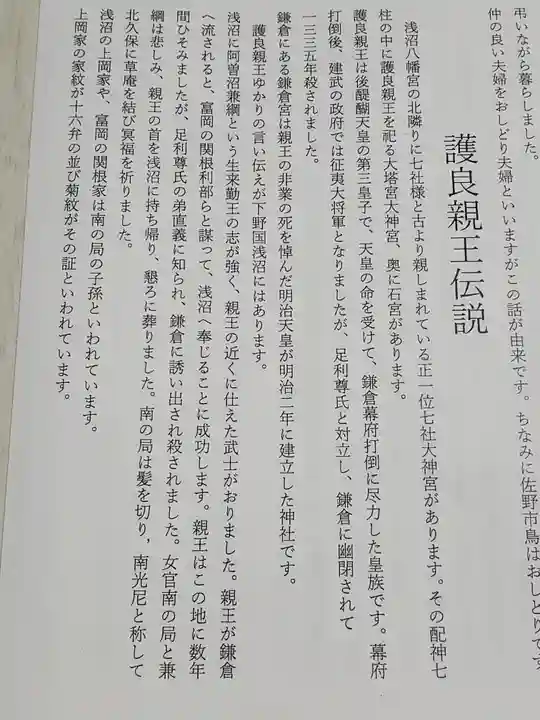 弔いながら暮らしました。
仲の良い夫婦をおしどり夫婦といいますがこの話が由来です。ちなみに佐野市鳥はおしどりです
護良親王伝説
浅沼八幡宮の北隣りに七社様と古より親しまれている正一位七社大神宮があります。その配神七
柱の中に護良親王を祀る大塔宮太神宮、奥に石宮があります。
護良親王は後醍醐天皇の第三皇子で、天皇の命を受けて、鎌倉幕府打倒に尽力した皇族です。幕府
打倒後、建武の政府では征夷大将軍となりましたが、足利尊氏と対立し、鎌倉に幽閉されて
一三三五年殺されました。
鎌倉にある鎌倉宮は親王の非業の死を悼んだ明治天皇が明治二年に建立した神社です。
護良親王ゆかりの言い伝えが下野国浅沼にはあります。
浅沼に阿曽沼兼綱という生来勤王の志が強く、親王の近くに仕えた武士がおりました。親王が鎌倉
へ流されると、富岡の関根利部らと謀って、浅沼へ奉じることに成功します。親王はこの地に数年
間ひそみましたが、足利尊氏の弟直義に知られ、鎌倉に誘い出され殺されました。女官南の局と兼
綱は悲しみ、親王の首を浅沼に持ち帰り、懇ろに葬りました。南の局は髪を切り，南光尼と称して
北久保に草庵を結び冥福を祈りました。
浅沼の上岡家や、富岡の関根家は南の局の子孫といわれています。
上岡家の家紋が十六弁の並び菊紋がその証といわれています。